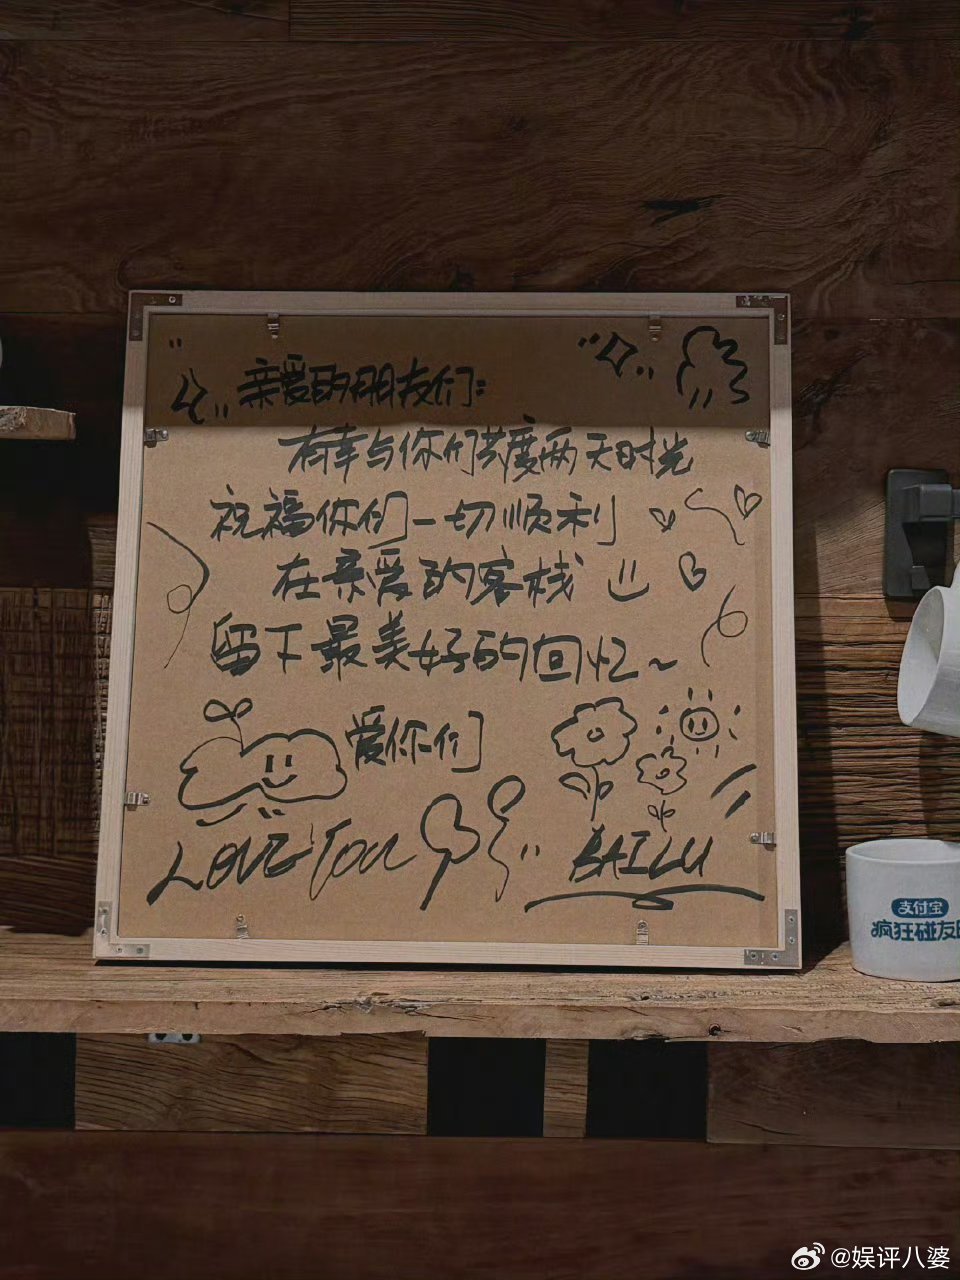 亲爱的朋友们：
有幸与你们共度两天时光
祝福你们一切顺利
在亲爱的客栈
留下最美好的回忆~
爱你们
LOVE YOU
BAILU
支付宝
疯狂碰友
@娱评八婆